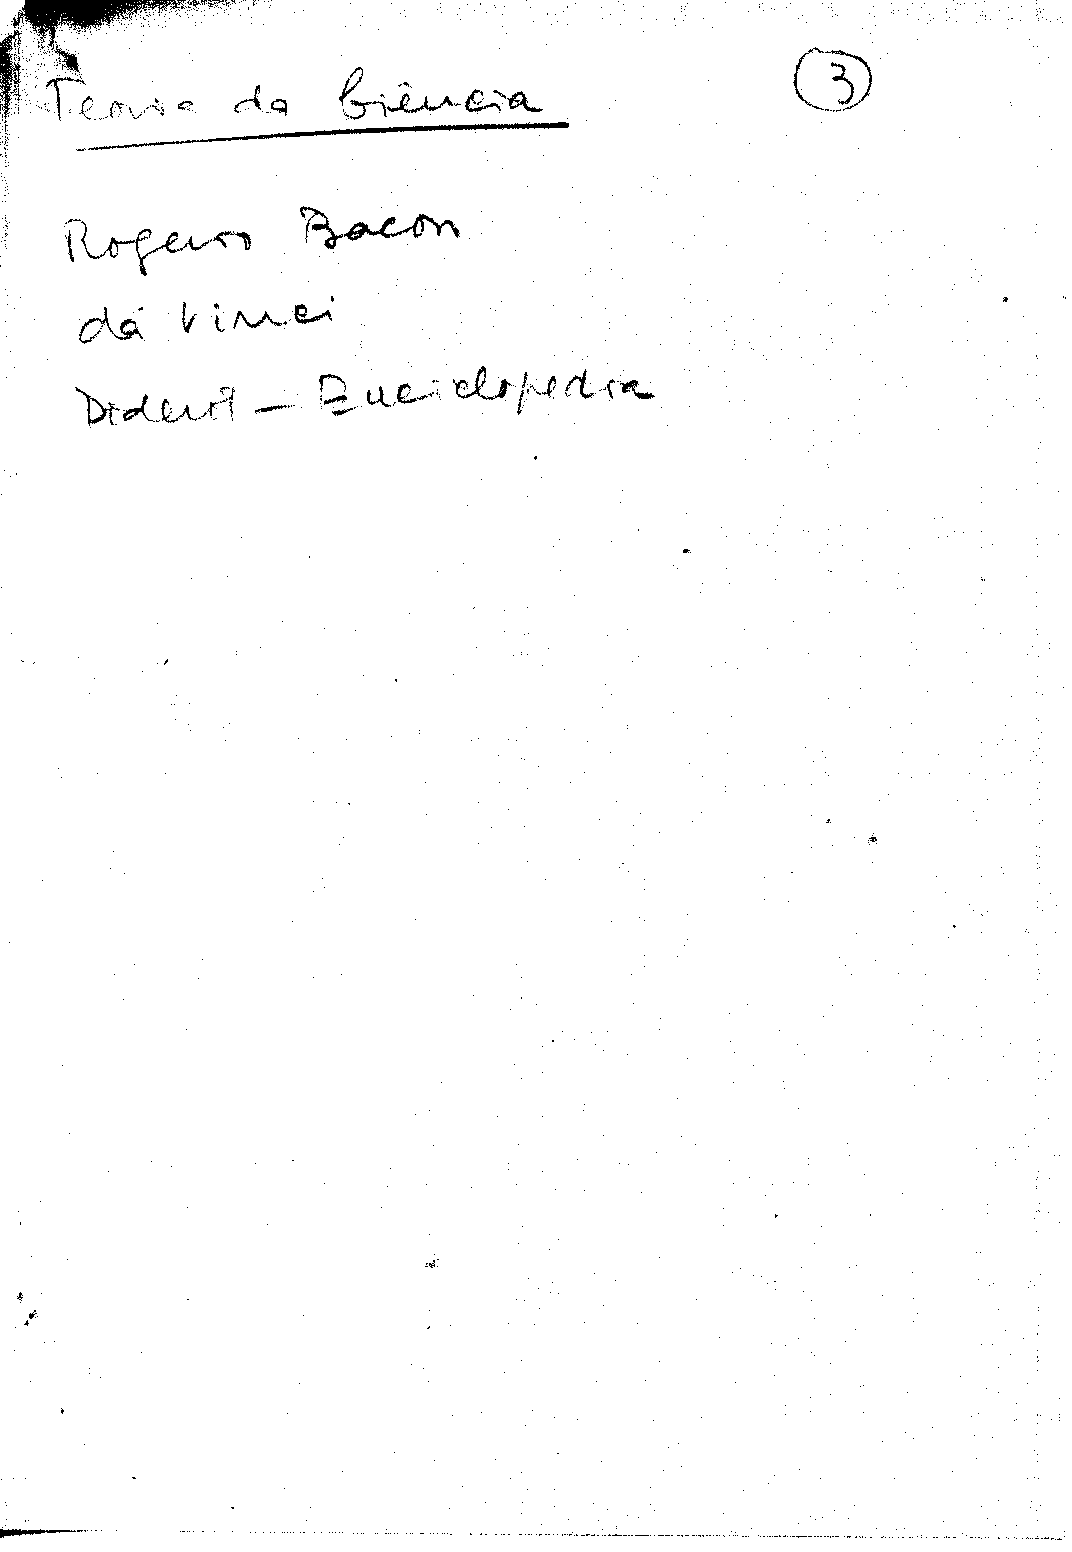 Teoria da Ciência
3
Rogerio Bacon
da Vinci
Diderot — Enciclopedia